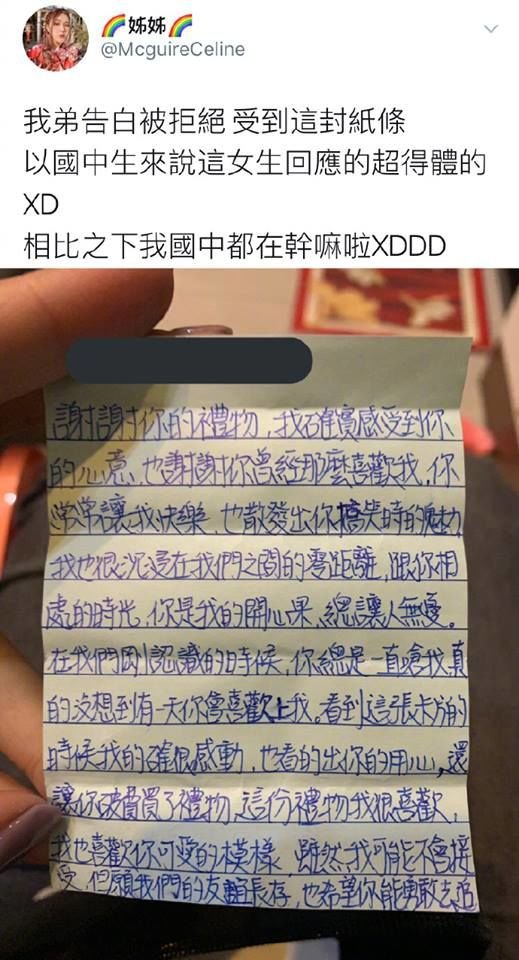 🌈姊姊🌈
@McguireCeline
我弟告白被拒絕 受到這封紙條
以國中生來說這女生回應的超得體的
XD
相比之下我國中都在幹嘛啦XDDD
謝謝你的禮物,我確實感受到你
的心意,也謝謝你曾經那麼喜歡我,你
常常讓我快樂,也散發出你搞笑時的魅力
我也很沉浸在我們之間的零距離,跟你相
處的時光,你是我的開心果,總讓人無憂。
在我們剛認識的時候,你總是一直嗆我,真
的沒想到有一天你會喜歡上我。看到這張卡片的
時候我的確很感動,也看的出你的用心,還
讓你破費買了禮物,這份禮物我很喜歡,
我也喜歡你可愛的模樣,雖然我可能不會接
受,但願我們的友誼長存,也希望你能勇敢去追